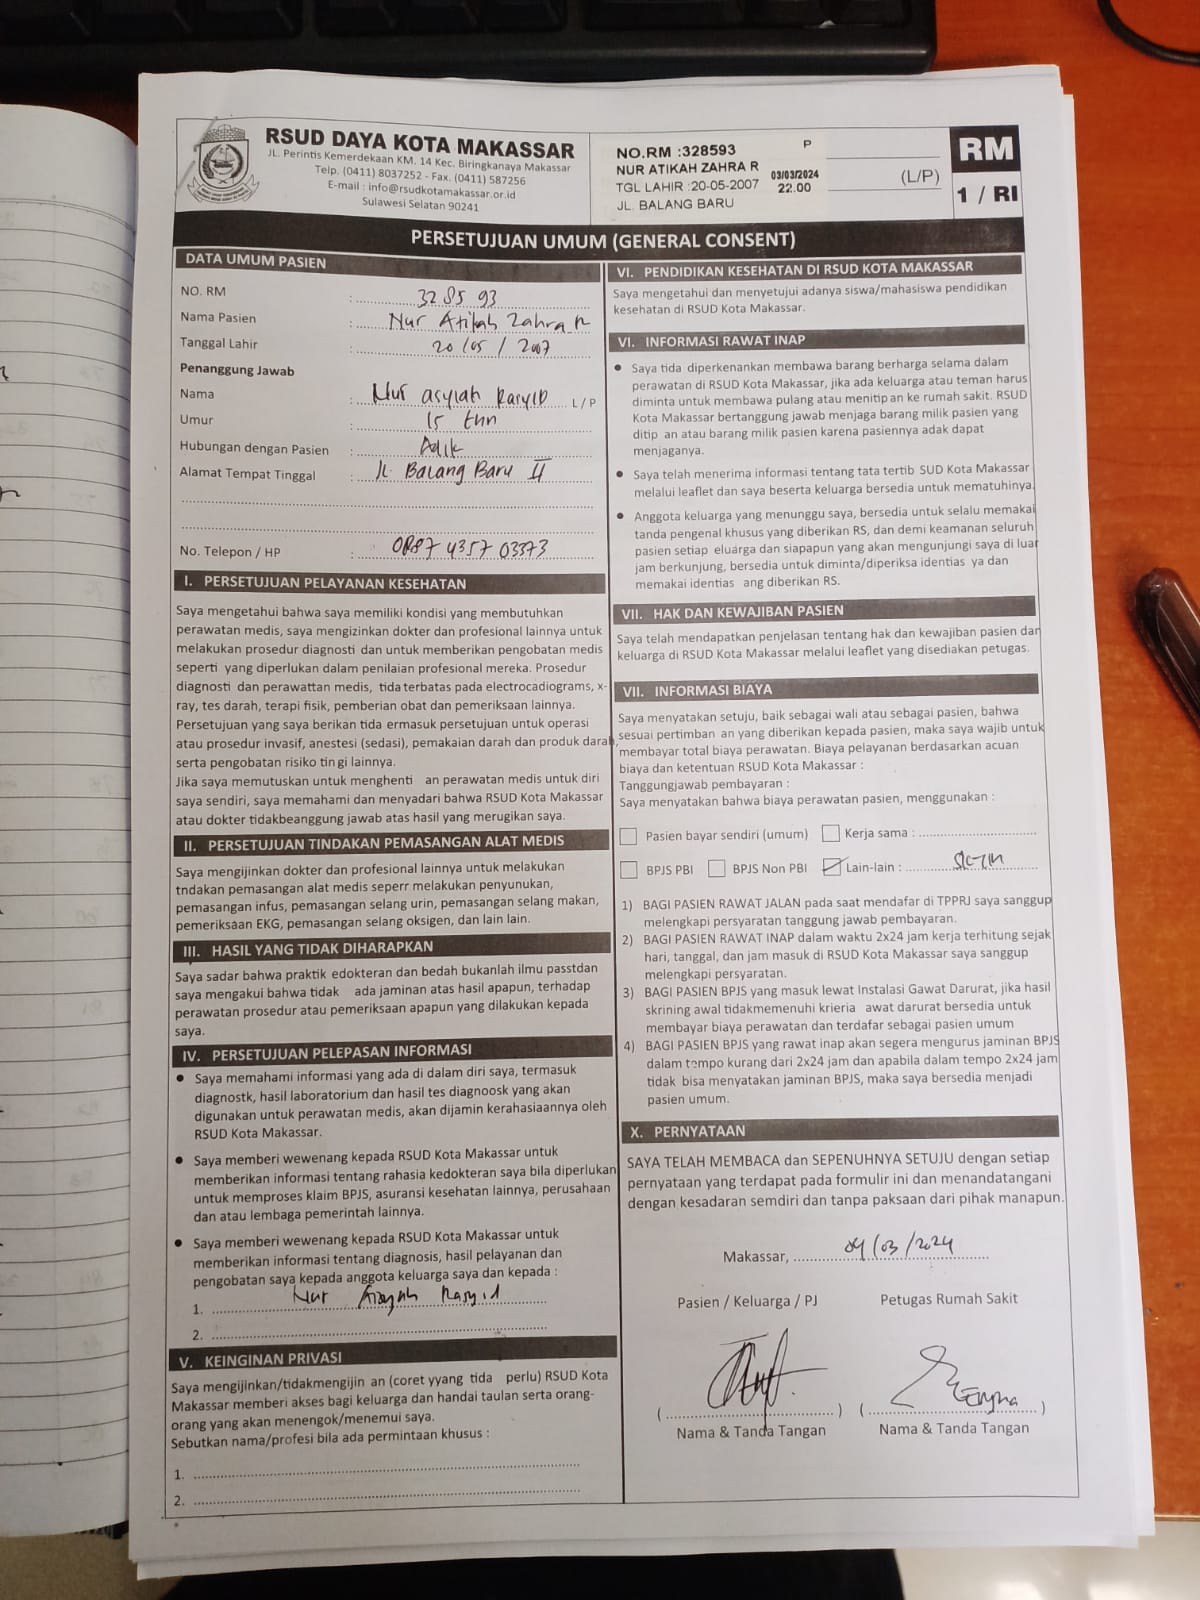 RSUD DAYA KOTA MAKASSAR
JL. Perintis Kemerdekaan KM. 14 Kec. Biringkanaya Makassar
Telp. (0411) 8037252 - Fax. (0411) 587256
E-mail : info@rsudkotamakassar.or.id
Sulawesi Selatan 90241
NO.RM :328593 P
NUR ATIKAH ZAHRA R
TGL LAHIR :20-05-2007
JL. BALANG BARU
03/03/2024
22.00
(L/P)
RM
1 / RI
PERSETUJUAN UMUM (GENERAL CONSENT)
DATA UMUM PASIEN
NO. RM : 32 85 93
Nama Pasien : Nur Atikah Zahra R
Tanggal Lahir : 20 / 05 / 2007
Penanggung Jawab
Nama : Nur asyiah Rasyid L / P
Umur : 15 thn
Hubungan dengan Pasien : Adik
Alamat Tempat Tinggal : Jl. Balang Baru II
No. Telepon / HP : 0887 4357 03373
I. PERSETUJUAN PELAYANAN KESEHATAN
Saya mengetahui bahwa saya memiliki kondisi yang membutuhkan
perawatan medis, saya mengizinkan dokter dan profesional lainnya untuk
melakukan prosedur diagnosti dan untuk memberikan pengobatan medis
seperti yang diperlukan dalam penilaian profesional mereka. Prosedur
diagnosti dan perawattan medis, tida terbatas pada electrocadiograms, x-
ray, tes darah, terapi fisik, pemberian obat dan pemeriksaan lainnya.
Persetujuan yang saya berikan tida ermasuk persetujuan untuk operasi
atau prosedur invasif, anestesi (sedasi), pemakaian darah dan produk darah,
serta pengobatan risiko tin gi lainnya.
Jika saya memutuskan untuk menghenti an perawatan medis untuk diri
saya sendiri, saya memahami dan menyadari bahwa RSUD Kota Makassar
atau dokter tidakbeanggung jawab atas hasil yang merugikan saya.
II. PERSETUJUAN TINDAKAN PEMASANGAN ALAT MEDIS
Saya mengijinkan dokter dan profesional lainnya untuk melakukan
tndakan pemasangan alat medis seperr melakukan penyunukan,
pemasangan infus, pemasangan selang urin, pemasangan selang makan,
pemeriksaan EKG, pemasangan selang oksigen, dan lain lain.
III. HASIL YANG TIDAK DIHARAPKAN
Saya sadar bahwa praktik edokteran dan bedah bukanlah ilmu passtdan
saya mengakui bahwa tidak ada jaminan atas hasil apapun, terhadap
perawatan prosedur atau pemeriksaan apapun yang dilakukan kepada
saya.
IV. PERSETUJUAN PELEPASAN INFORMASI
● Saya memahami informasi yang ada di dalam diri saya, termasuk
diagnostk, hasil laboratorium dan hasil tes diagnoosk yang akan
digunakan untuk perawatan medis, akan dijamin kerahasiaannya oleh
RSUD Kota Makassar.
● Saya memberi wewenang kepada RSUD Kota Makassar untuk
memberikan informasi tentang rahasia kedokteran saya bila diperlukan
untuk memproses klaim BPJS, asuransi kesehatan lainnya, perusahaan
dan atau lembaga pemerintah lainnya.
● Saya memberi wewenang kepada RSUD Kota Makassar untuk
memberikan informasi tentang diagnosis, hasil pelayanan dan
pengobatan saya kepada anggota keluarga saya dan kepada :
1. Nur Aisyah Rasyid
2.
V. KEINGINAN PRIVASI
Saya mengijinkan/tidakmengijin an (coret yyang tida perlu) RSUD Kota
Makassar memberi akses bagi keluarga dan handai taulan serta orang-
orang yang akan menengok/menemui saya.
Sebutkan nama/profesi bila ada permintaan khusus :
1.
2.
VI. PENDIDIKAN KESEHATAN DI RSUD KOTA MAKASSAR
Saya mengetahui dan menyetujui adanya siswa/mahasiswa pendidikan
kesehatan di RSUD Kota Makassar.
VI. INFORMASI RAWAT INAP
● Saya tida diperkenankan membawa barang berharga selama dalam
perawatan di RSUD Kota Makassar, jika ada keluarga atau teman harus
diminta untuk membawa pulang atau menitip an ke rumah sakit. RSUD
Kota Makassar bertanggung jawab menjaga barang milik pasien yang
ditip an atau barang milik pasien karena pasiennya adak dapat
menjaganya.
● Saya telah menerima informasi tentang tata tertib SUD Kota Makassar
melalui leaflet dan saya beserta keluarga bersedia untuk mematuhinya.
● Anggota keluarga yang menunggu saya, bersedia untuk selalu memakai
tanda pengenal khusus yang diberikan RS, dan demi keamanan seluruh
pasien setiap eluarga dan siapapun yang akan mengunjungi saya di luar
jam berkunjung, bersedia untuk diminta/diperiksa identias ya dan
memakai identias ang diberikan RS.
VII. HAK DAN KEWAJIBAN PASIEN
Saya telah mendapatkan penjelasan tentang hak dan kewajiban pasien dan
keluarga di RSUD Kota Makassar melalui leaflet yang disediakan petugas.
VII. INFORMASI BIAYA
Saya menyatakan setuju, baik sebagai wali atau sebagai pasien, bahwa
sesuai pertimban an yang diberikan kepada pasien, maka saya wajib untuk
membayar total biaya perawatan. Biaya pelayanan berdasarkan acuan
biaya dan ketentuan RSUD Kota Makassar :
Tanggungjawab pembayaran :
Saya menyatakan bahwa biaya perawatan pasien, menggunakan :
Pasien bayar sendiri (umum) Kerja sama :
BPJS PBI BPJS Non PBI Lain-lain :
1) BAGI PASIEN RAWAT JALAN pada saat mendafar di TPPRJ saya sanggup
melengkapi persyaratan tanggung jawab pembayaran.
2) BAGI PASIEN RAWAT INAP dalam waktu 2x24 jam kerja terhitung sejak
hari, tanggal, dan jam masuk di RSUD Kota Makassar saya sanggup
melengkapi persyaratan.
3) BAGI PASIEN BPJS yang masuk lewat Instalasi Gawat Darurat, jika hasil
skrining awal tidakmemenuhi krieria awat darurat bersedia untuk
membayar biaya perawatan dan terdafar sebagai pasien umum
4) BAGI PASIEN BPJS yang rawat inap akan segera mengurus jaminan BPJS
dalam tempo kurang dari 2x24 jam dan apabila dalam tempo 2x24 jam
tidak bisa menyatakan jaminan BPJS, maka saya bersedia menjadi
pasien umum.
X. PERNYATAAN
SAYA TELAH MEMBACA dan SEPENUHNYA SETUJU dengan setiap
pernyataan yang terdapat pada formulir ini dan menandatangani
dengan kesadaran semdiri dan tanpa paksaan dari pihak manapun.
Makassar, 04/03/2024
Pasien / Keluarga / PJ Petugas Rumah Sakit
Nama & Tanda Tangan Nama & Tanda Tangan